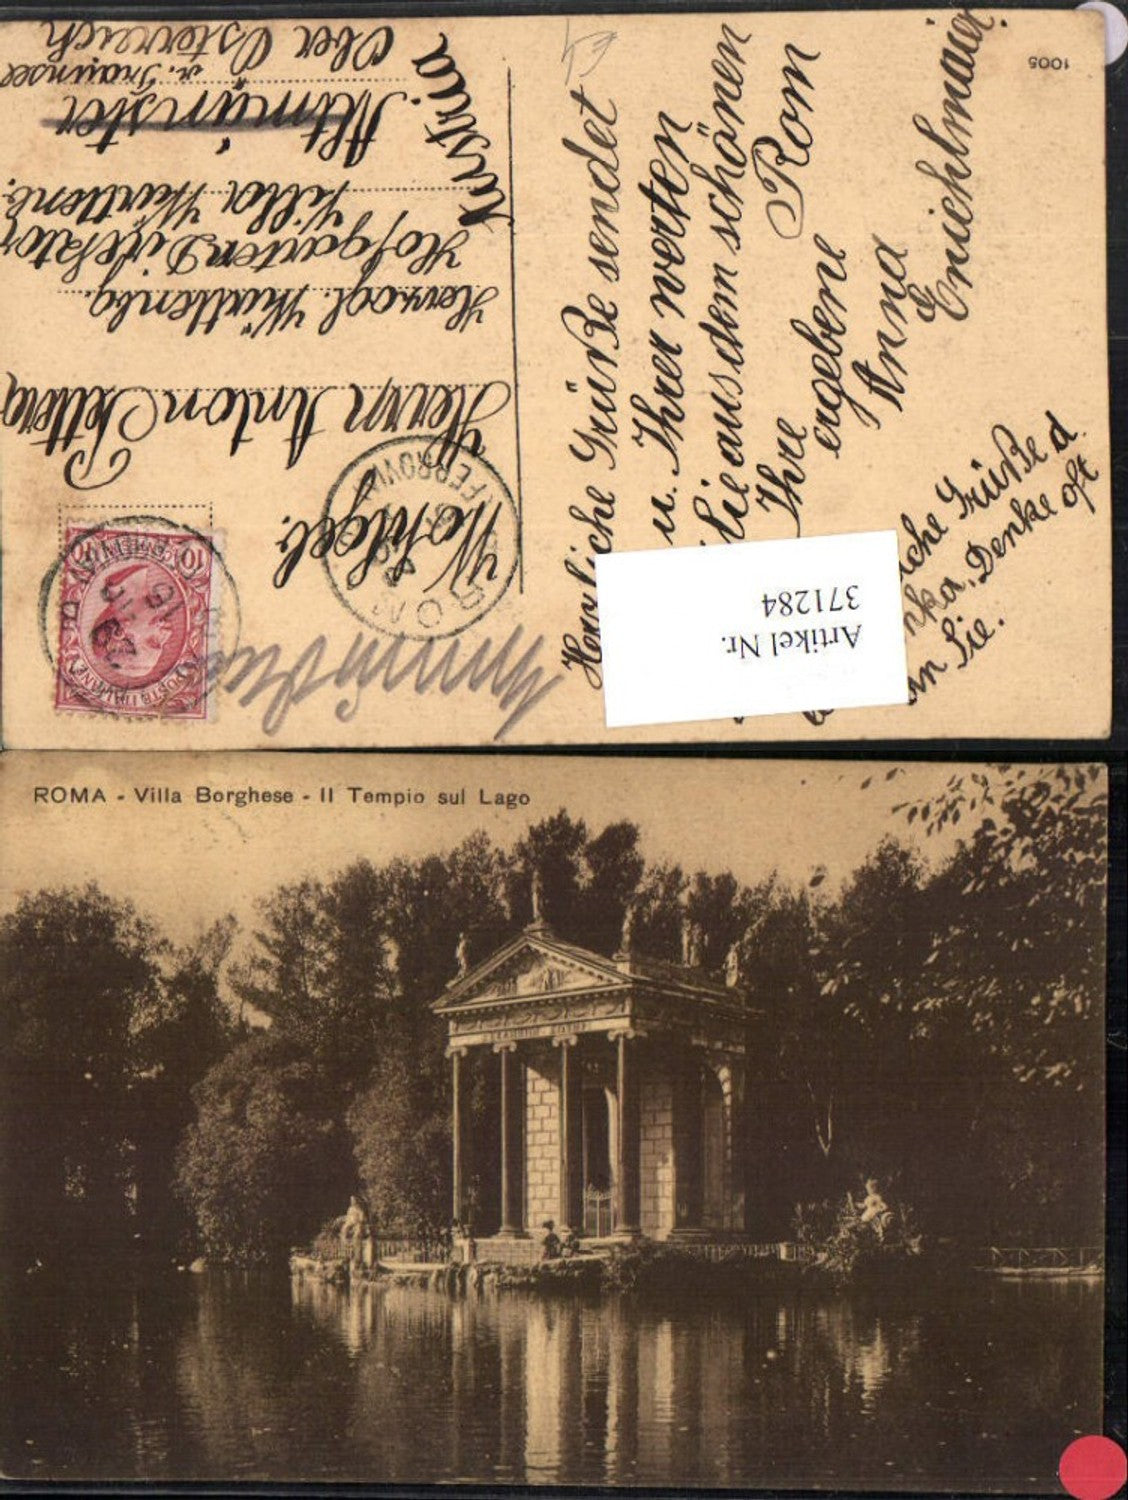 Wohlgeb.
Herrn Anton
Herzogl. Württenbg.
Hofgarten Direktor
Villa Württenb.
Altmünster
a. Traunsee
Ober Österreich
Austria
Herzliche Grüße sendet
u. Ihrer werten
Sie aus dem schönen
Rom
Ihre
ergebene
Anna
Enichlmaier.
Grüße d.
Denke oft
an Sie.
1005
ROMA
FERROVIA
POSTE ITALIANE
10
Artikel Nr.
371284
ROMA - Villa Borghese - Il Tempio sul Lago